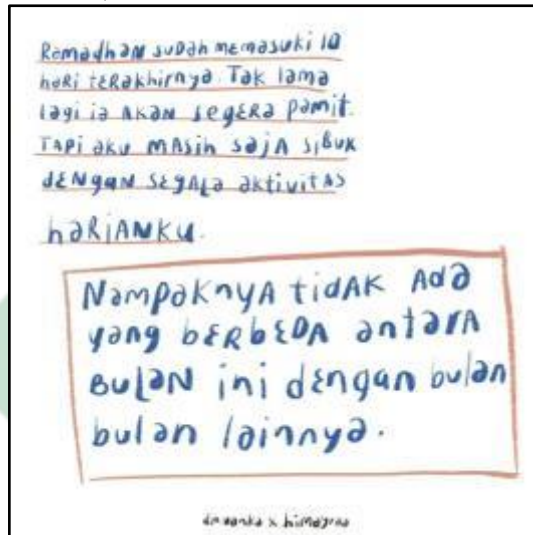 Ramadhan sudah memasuki 10
hari terakhirnya. Tak lama
lagi ia akan segera pamit.
Tapi aku masih saja sibuk
dengan segala aktivitas
harianku.
Nampaknya tidak ada
yang berbeda antara
bulan ini dengan bulan
bulan lainnya.